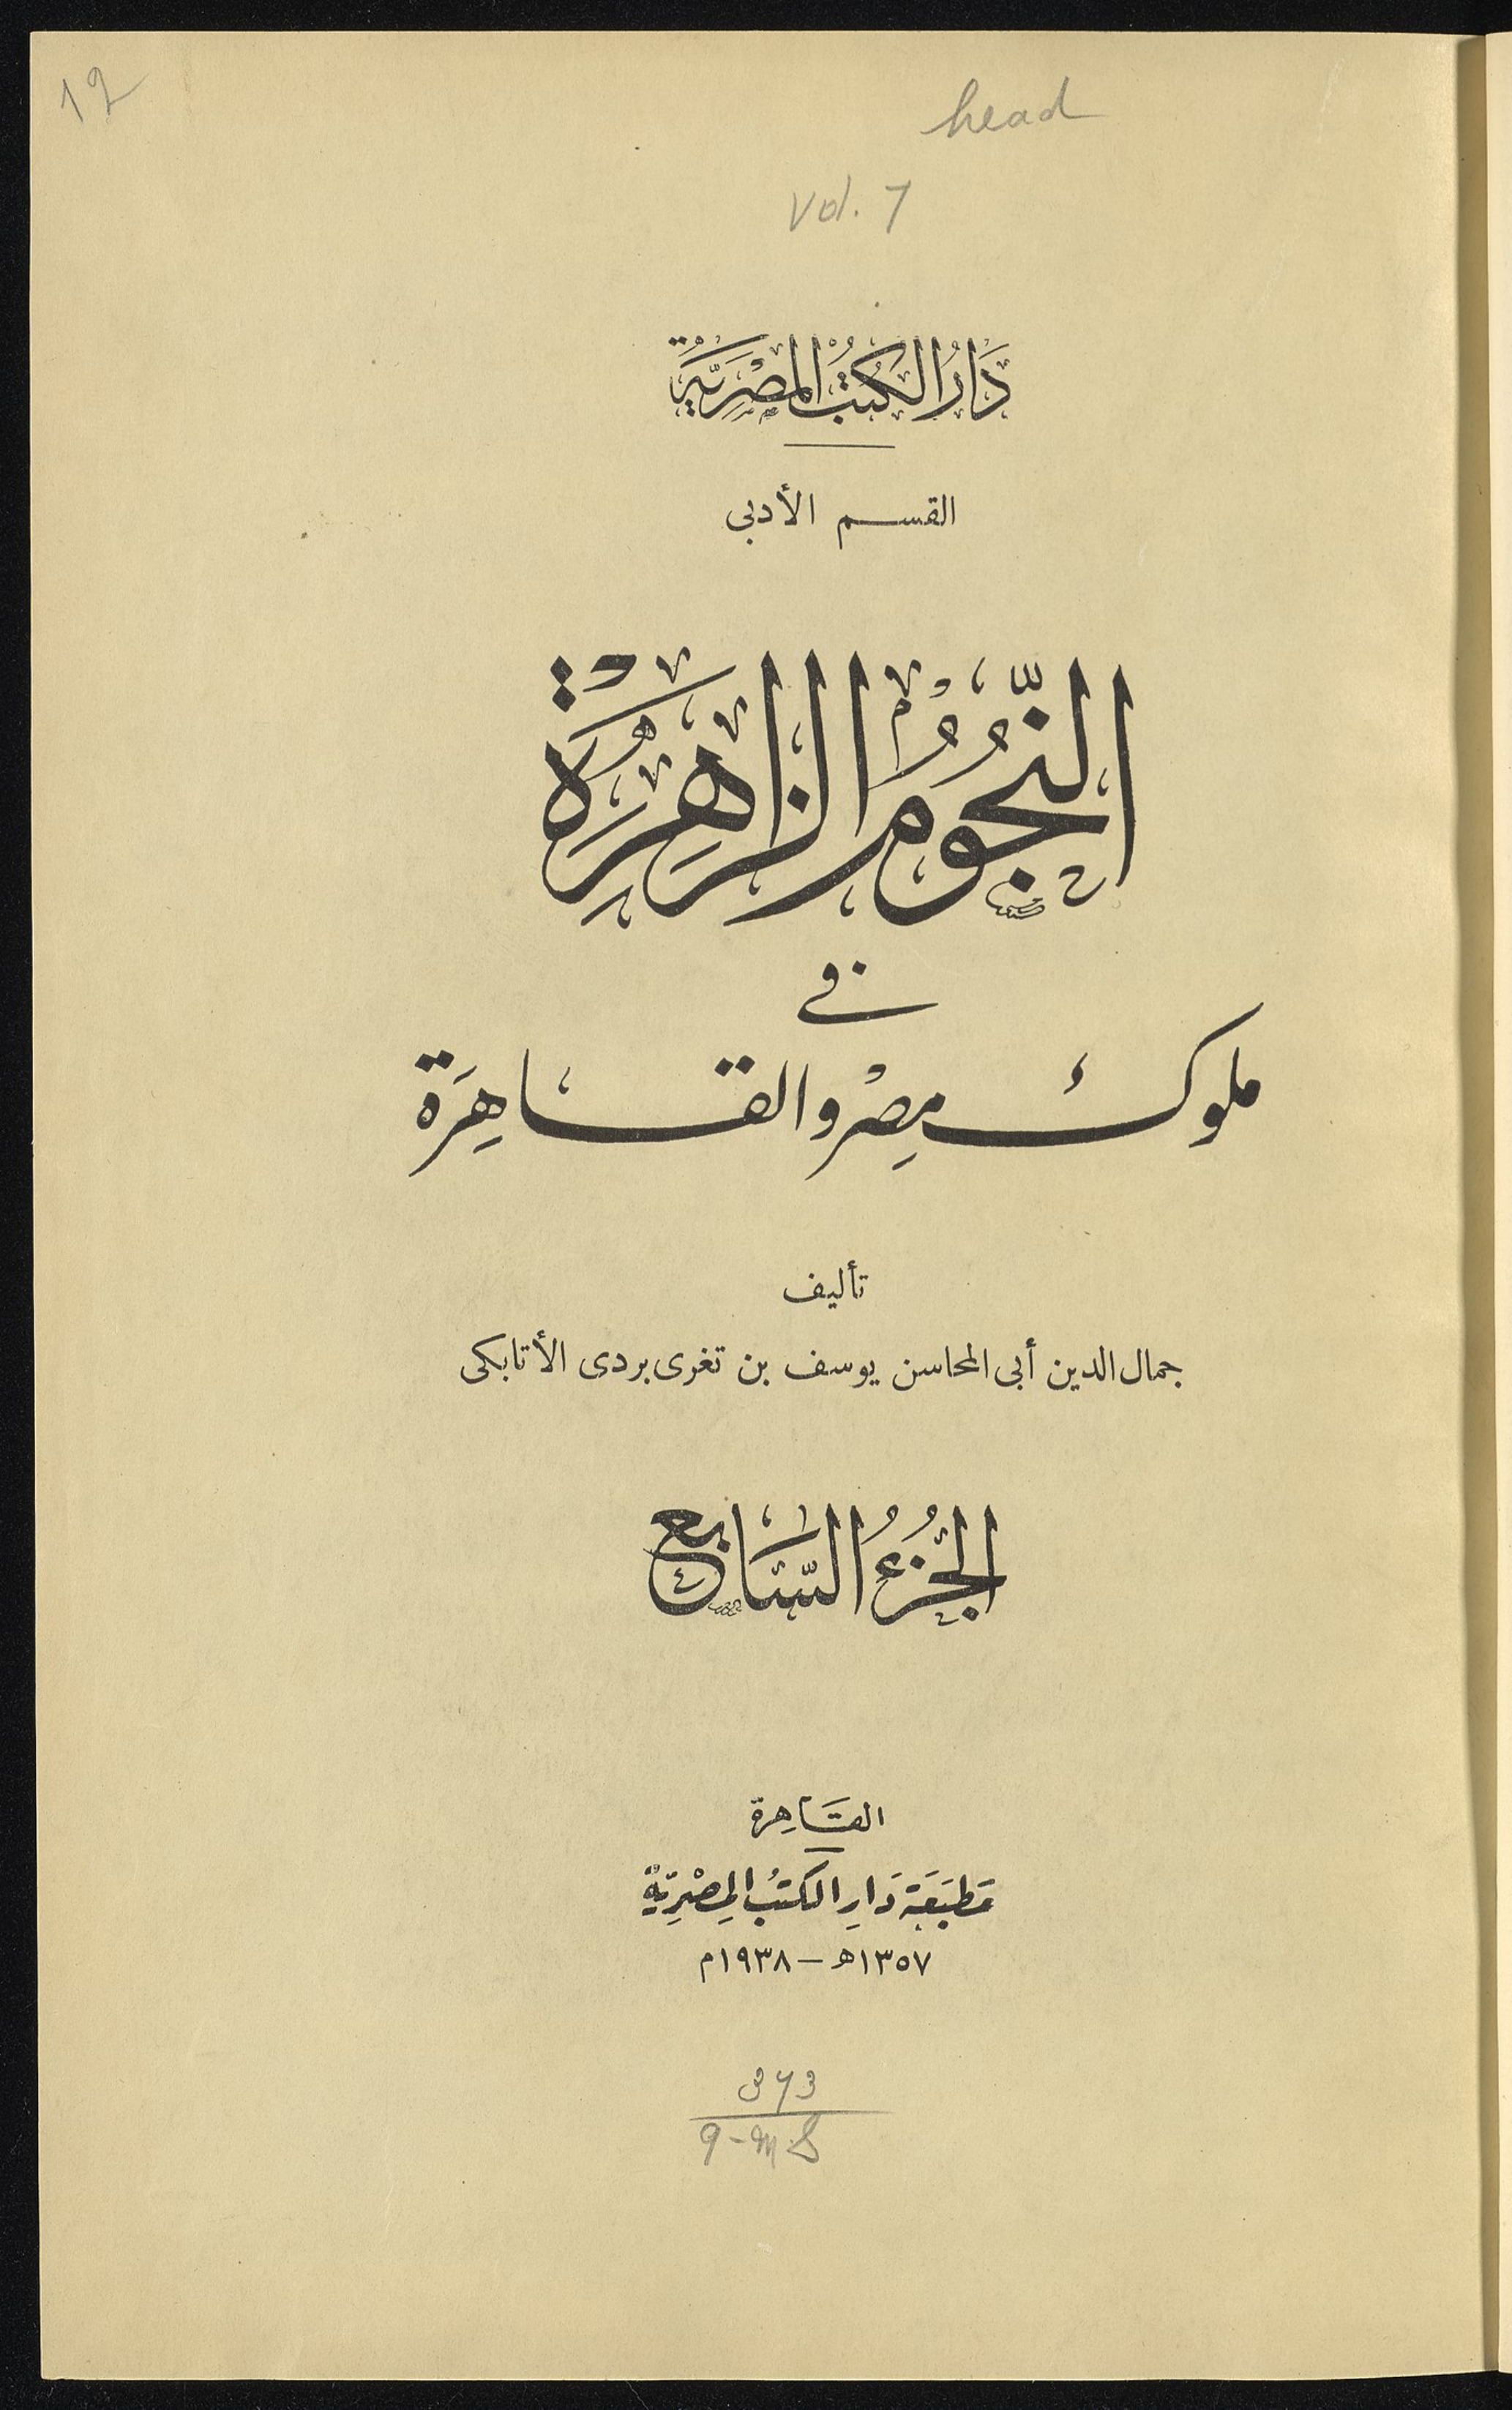 12
head
vol. 7
دَارُ الكُتُبِ المِصْرِيَّةِ
القسم الأدبى
النُّجُومُ الزَّاهِرَةُ
فى
ملوك مِصْر والقاهِرَة
تأليف
جمال الدين أبى المحاسن يوسف بن تغرى بردى الأتابكى
الجُزْءُ السَّابِع
القَاهِرة
مَطبَعَة دَارِ الكتُبِ المِصْرِيَّةِ
١٣٥٧ﻫ — ١٩٣٨م